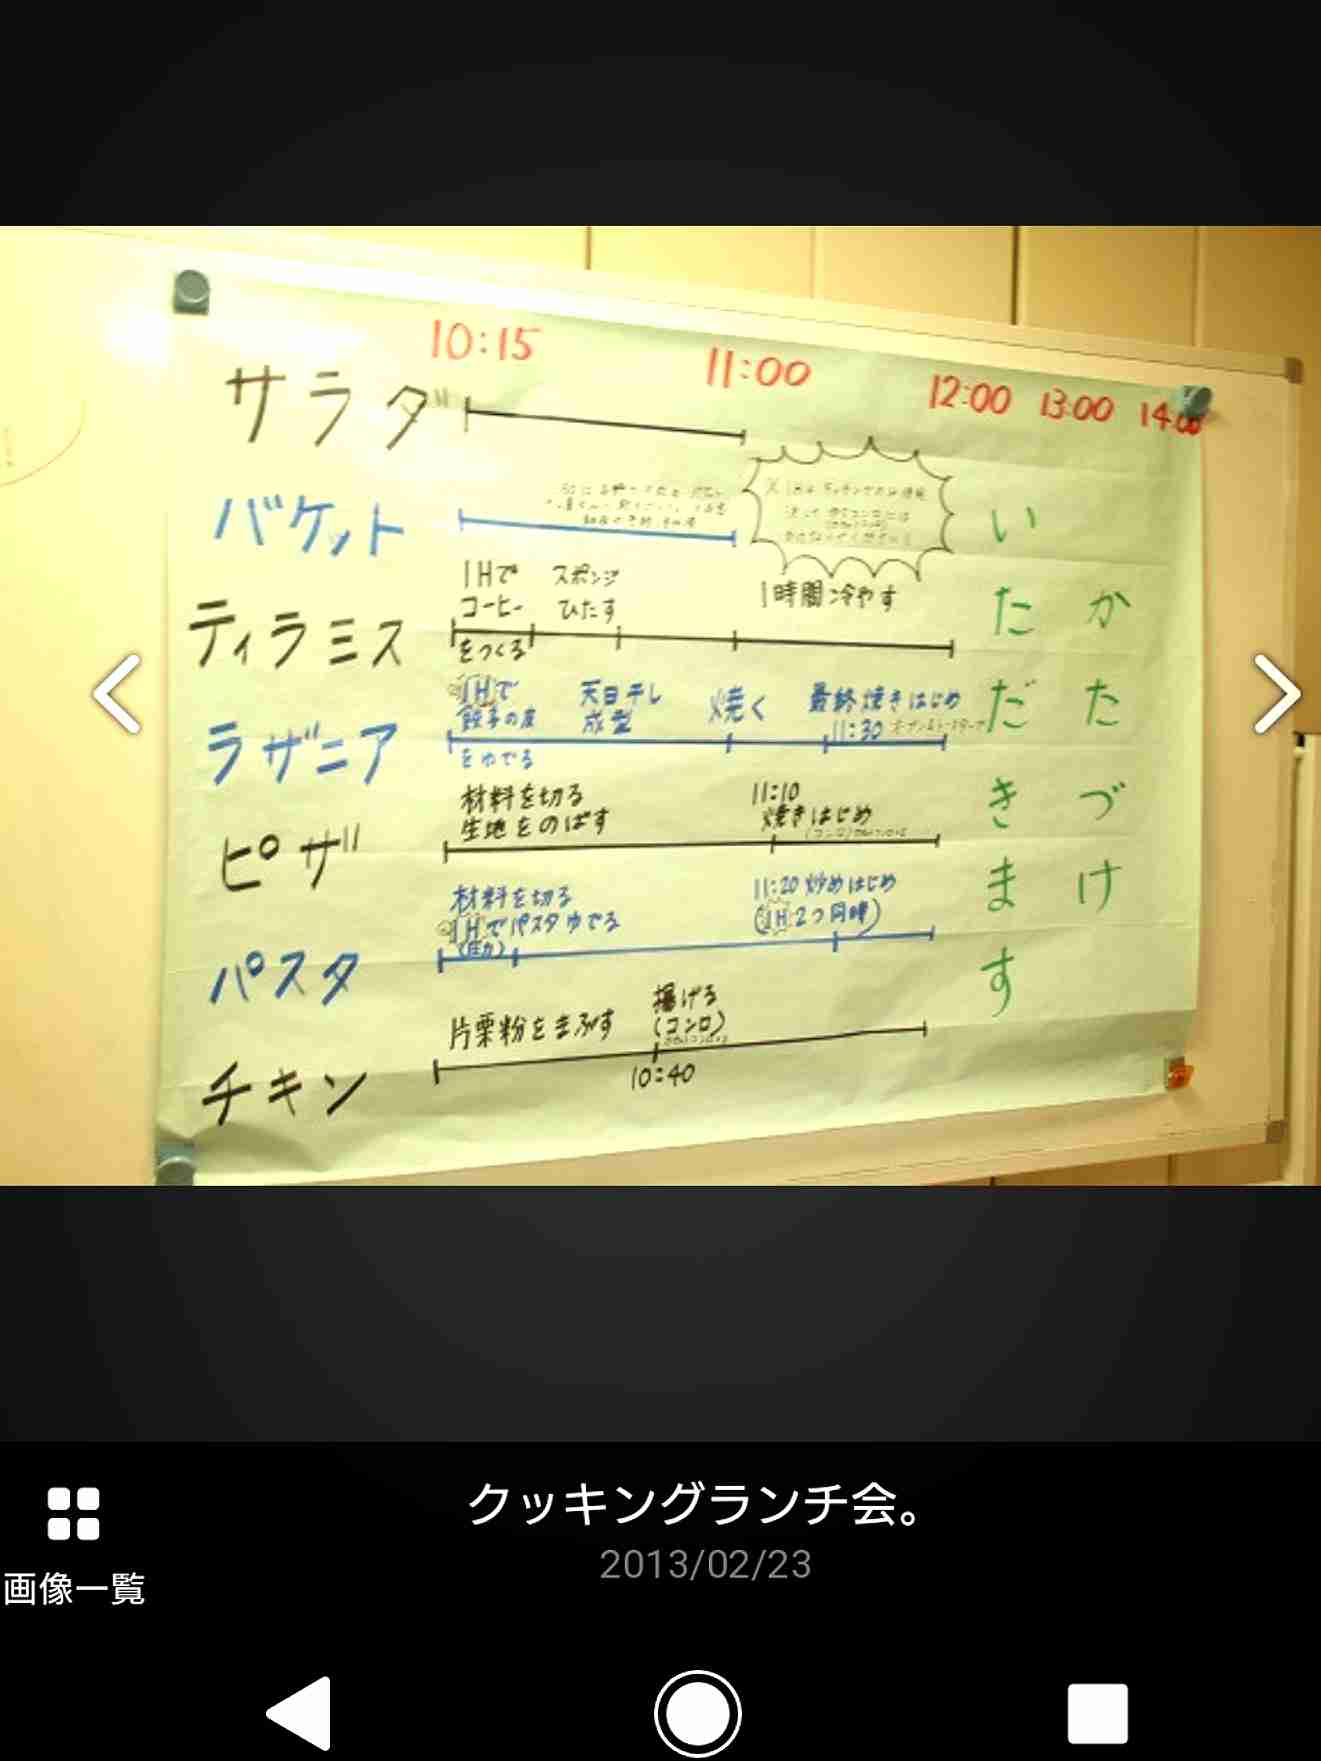 10:15
11:00
12:00
13:00
14:00
サラダ
バケット
ティラミス
IHで
コーヒー
をつくる
スポンジ
ひたす
1時間冷やす
ラザニア
IHで
餃子の皮
をゆでる
天日干し
成型
焼く
最終焼きはじめ
11:30
ピザ
材料を切る
生地をのばす
11:10
焼きはじめ
パスタ
材料を切る
IHでパスタゆでる
11:20 炒めはじめ
(IH2つ同時)
チキン
片栗粉をまぶす
揚げる
(コンロ)
10:40
いただきます
かたづけ
クッキングランチ会。
2013/02/23
画像一覧